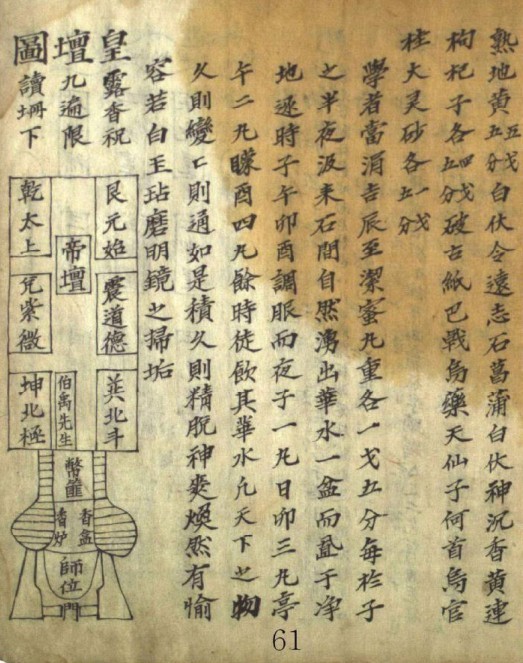 熟地黄五戈五分白伏令遠志石菖蒲白伏神沉香黄連
枸杞子各四戈五分破古紙巴戟烏藥天仙子何首烏官
桂大灵砂各一戈五分
學者當涓吉辰至潔蜜丸重各一戈五分每於子
之半夜汲来石間自然湧出華水一盆而置于净
地逐時子午卯酉調眼而夜子一丸日卯三丸亭
午二丸矇酉四丸餘時徒飲其華水凡天下之物
久則變〻則通如是積久則精脫神爽煥然有愉
容若白玉玷磨明鏡之掃垢
皇露香祝
壇九遍限
圖讀坍下
艮元始
震道德
巽北斗
帝壇
伯禹先生
乾太上
兌紫微
坤北極
幣篚
香盒
香炉
師位
門
61